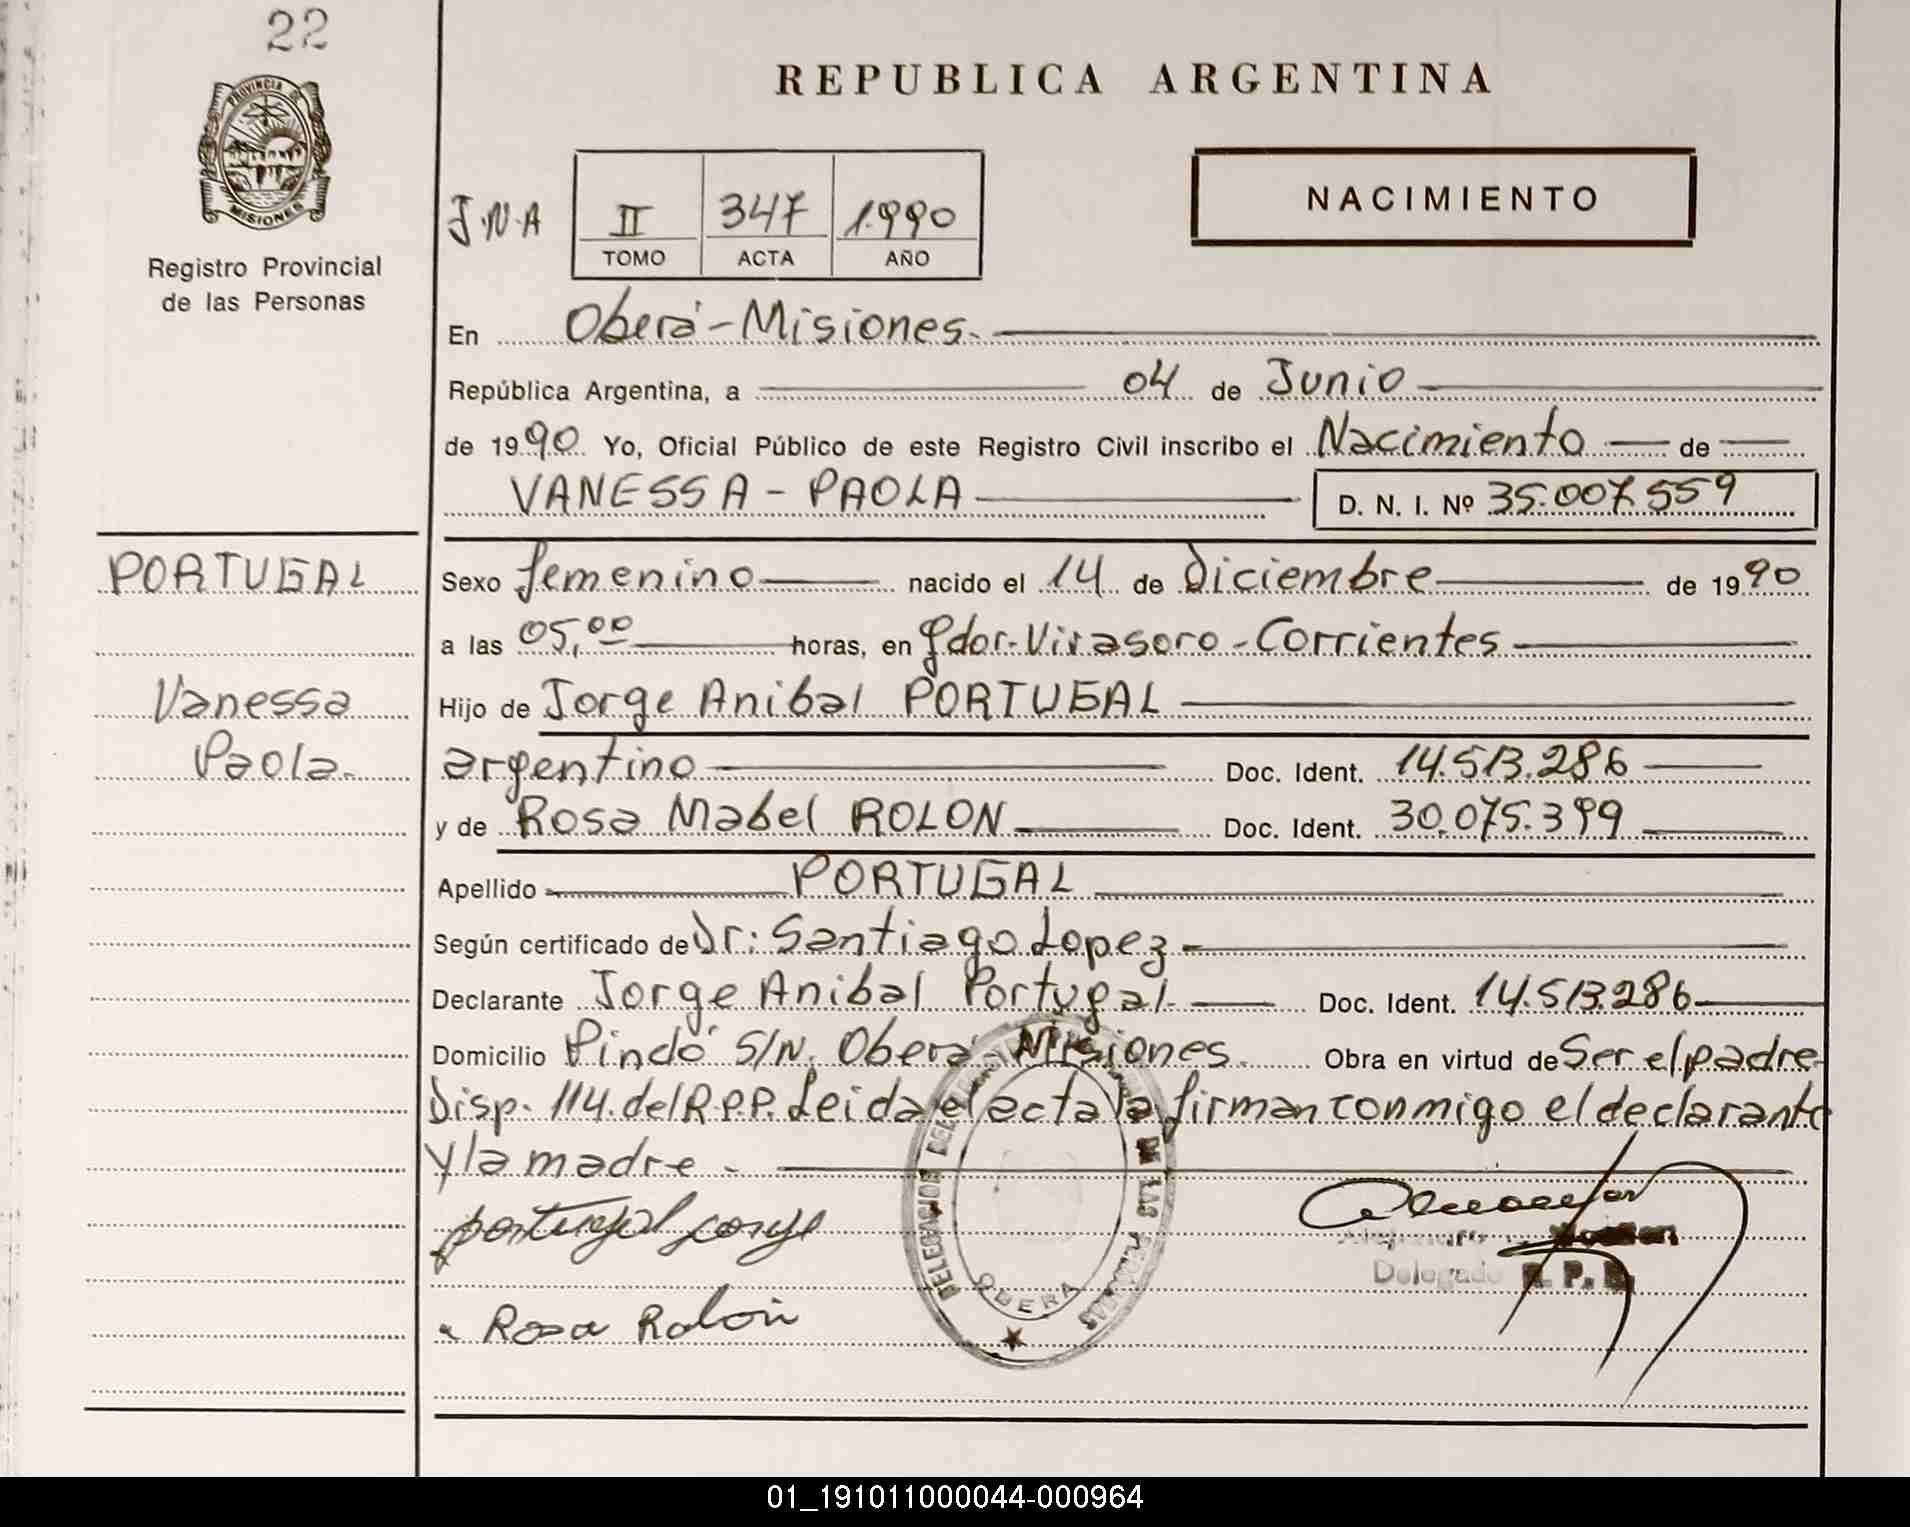 22
PROVINCIA DE
MISIONES
Registro Provincial
de las Personas
REPUBLICA ARGENTINA
NACIMIENTO
J.N.A
II 347 1.990
TOMO ACTA AÑO
En Oberá - Misiones.
República Argentina, a 04 de Junio
de 1990 Yo, Oficial Público de este Registro Civil inscribo el Nacimiento de
VANESSA - PAOLA D. N. I. Nº 35.007.559
PORTUGAL
Vanessa
Paola.
Sexo femenino nacido el 14 de Diciembre de 1990
a las 05,00 horas, en Gdor. Virasoro - Corrientes
Hijo de Jorge Anibal PORTUGAL
argentino Doc. Ident. 14.513.286
y de Rosa Mabel ROLON Doc. Ident. 30.075.399
Apellido PORTUGAL
Según certificado de Dr: Santiago Lopez
Declarante Jorge Anibal Portugal. Doc. Ident. 14.513.286
Domicilio Pindó S/N. Oberá - Misiones. Obra en virtud de Ser el padre
Disp. 114. del R.P.P. Leida el acta la firman conmigo el declarante
y la madre.
portugal jorge
Rosa Rolon
DELEGACION DEL DE LAS PERSONAS
OBERA
Delegado R. P. P.
01_191011000044-000964